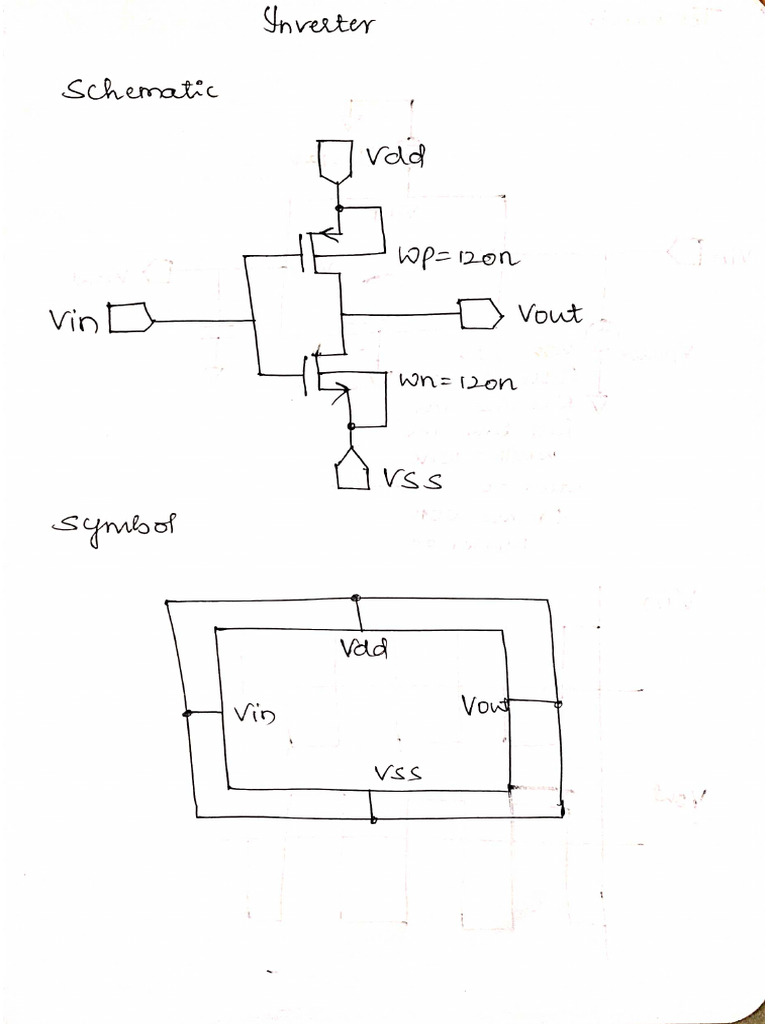 Inverter
Schematic
Vdd
Wp=120n
Vin
Vout
Wn=120n
VSS
Symbol
Vdd
Vin
Vout
VSS